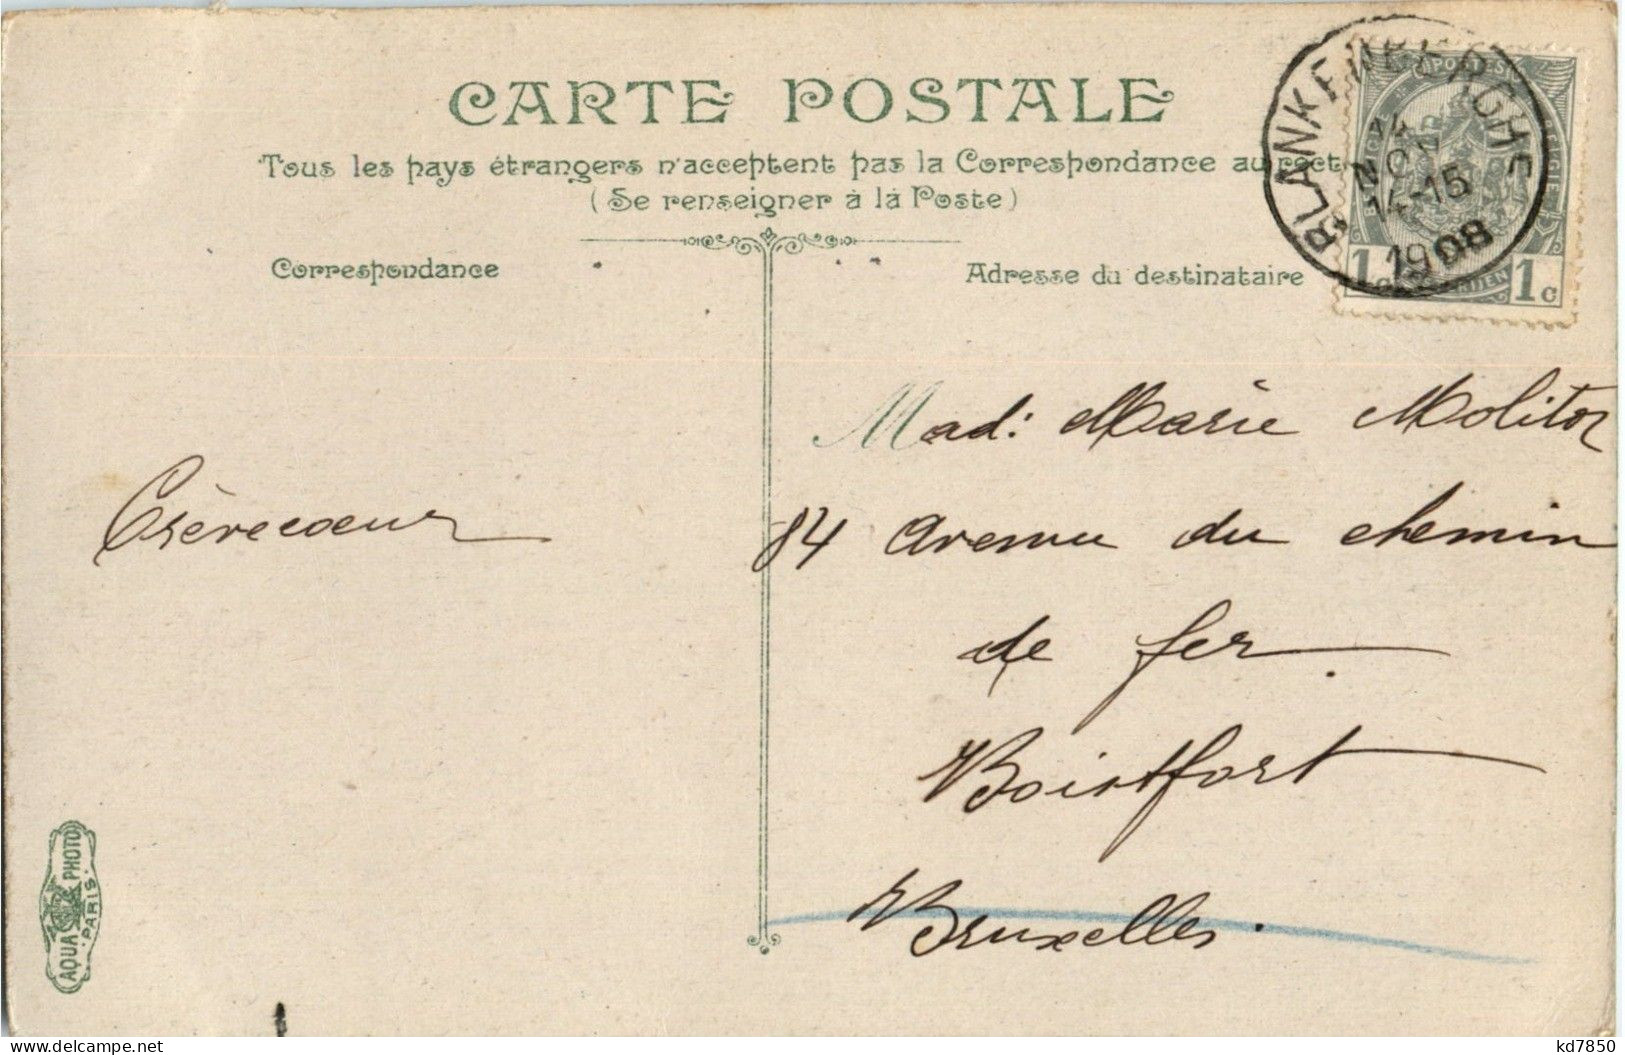 CARTE POSTALE
Tous les pays étrangers n'acceptent pas la Correspondance au rect
(Se renseigner à la Poste)
Correspondance
Adresse du destinataire
BLANKENBERGHE
14-15
1908
1c 1c
Mad: Marie Molitor
Crèvecoeur
84 avenue du chemin
de fer
Boistfort
Bruxelles.
AQUA PHOTO
PARIS
delcampe.net
kd7850